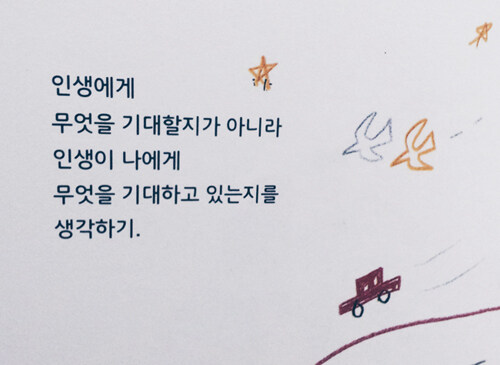 인생에게
무엇을 기대할지가 아니라
인생이 나에게
무엇을 기대하고 있는지를
생각하기.